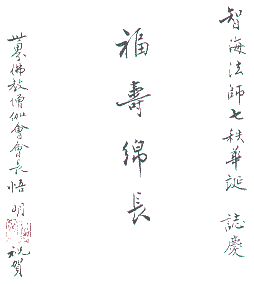 智海法師七秩華誕 誌慶
福壽綿長
世界佛教僧伽會會長悟明 祝賀